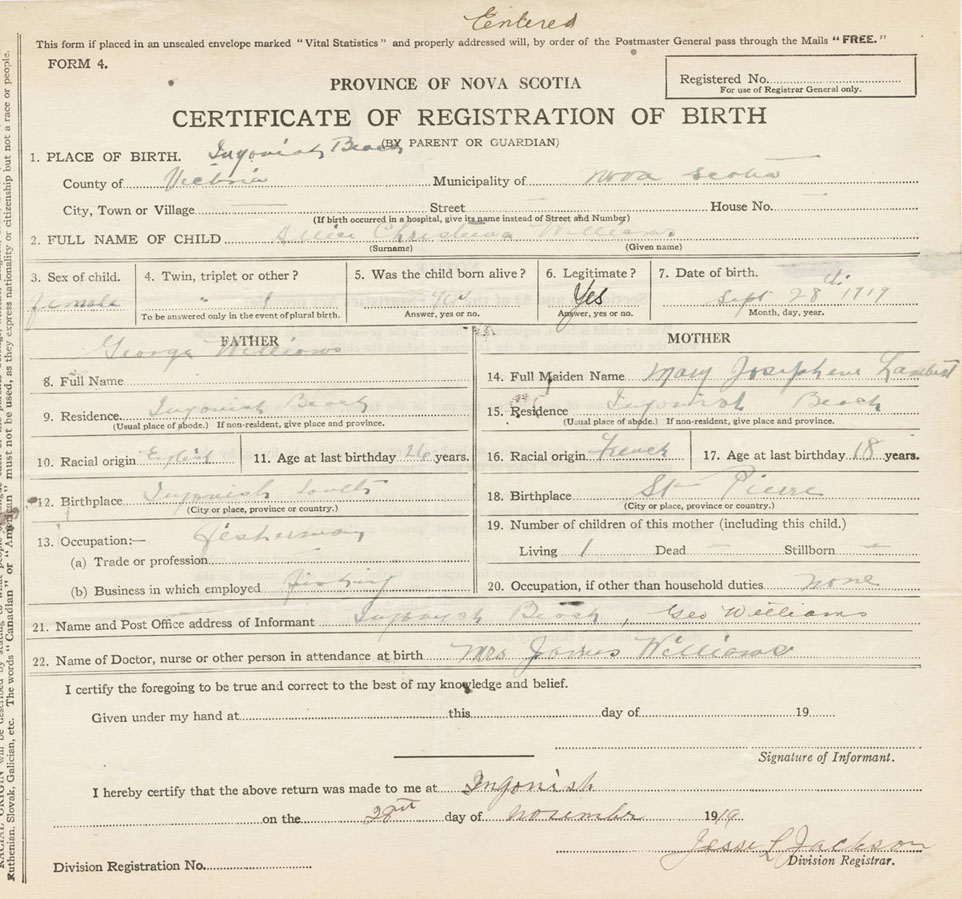 Entered
This form if placed in an unsealed envelope marked "Vital Statistics" and properly addressed will, by order of the Postmaster General pass through the Mails "FREE."
FORM 4.
Registered No.
For use of Registrar General only.
PROVINCE OF NOVA SCOTIA
CERTIFICATE OF REGISTRATION OF BIRTH
(BY PARENT OR GUARDIAN)
1. PLACE OF BIRTH. Ingonish Beach
County of Victoria Municipality of Nova Scotia
City, Town or Village Street House No.
(If birth occurred in a hospital, give its name instead of Street and Number)
2. FULL NAME OF CHILD Christina Williams
(Surname) (Given name)
3. Sex of child. 4. Twin, triplet or other? 5. Was the child born alive? 6. Legitimate? 7. Date of birth.
female 1 Yes Yes Sept 28th 1919
To be answered only in the event of plural birth. Answer, yes or no. Answer, yes or no. Month, day, year.
FATHER
George Williams
8. Full Name
9. Residence Ingonish Beach
(Usual place of abode.) If non-resident, give place and province.
10. Racial origin English 11. Age at last birthday 26 years.
12. Birthplace Ingonish South
(City or place, province or country.)
13. Occupation:— Fisherman
(a) Trade or profession
(b) Business in which employed fishing
MOTHER
14. Full Maiden Name Mary Josephene Lambert
15. Residence Ingonish Beach
(Usual place of abode.) If non-resident, give place and province.
16. Racial origin French 17. Age at last birthday 18 years.
18. Birthplace St Pierre
(City or place, province or country.)
19. Number of children of this mother (including this child.)
Living 1 Dead — Stillborn —
20. Occupation, if other than household duties. None
21. Name and Post Office address of Informant Ingonish Beach, Geo Williams
22. Name of Doctor, nurse or other person in attendance at birth Mrs James Williams
I certify the foregoing to be true and correct to the best of my knowledge and belief.
Given under my hand at this day of 19
Signature of Informant.
I hereby certify that the above return was made to me at Ingonish
on the day of November 1919
Jesse L Jackson
Division Registrar.
Division Registration No.
Ruthenian, Slovak, Galician, etc. The words "Canadian" or "American" must not be used, as they express nationality or citizenship but not a race or people.